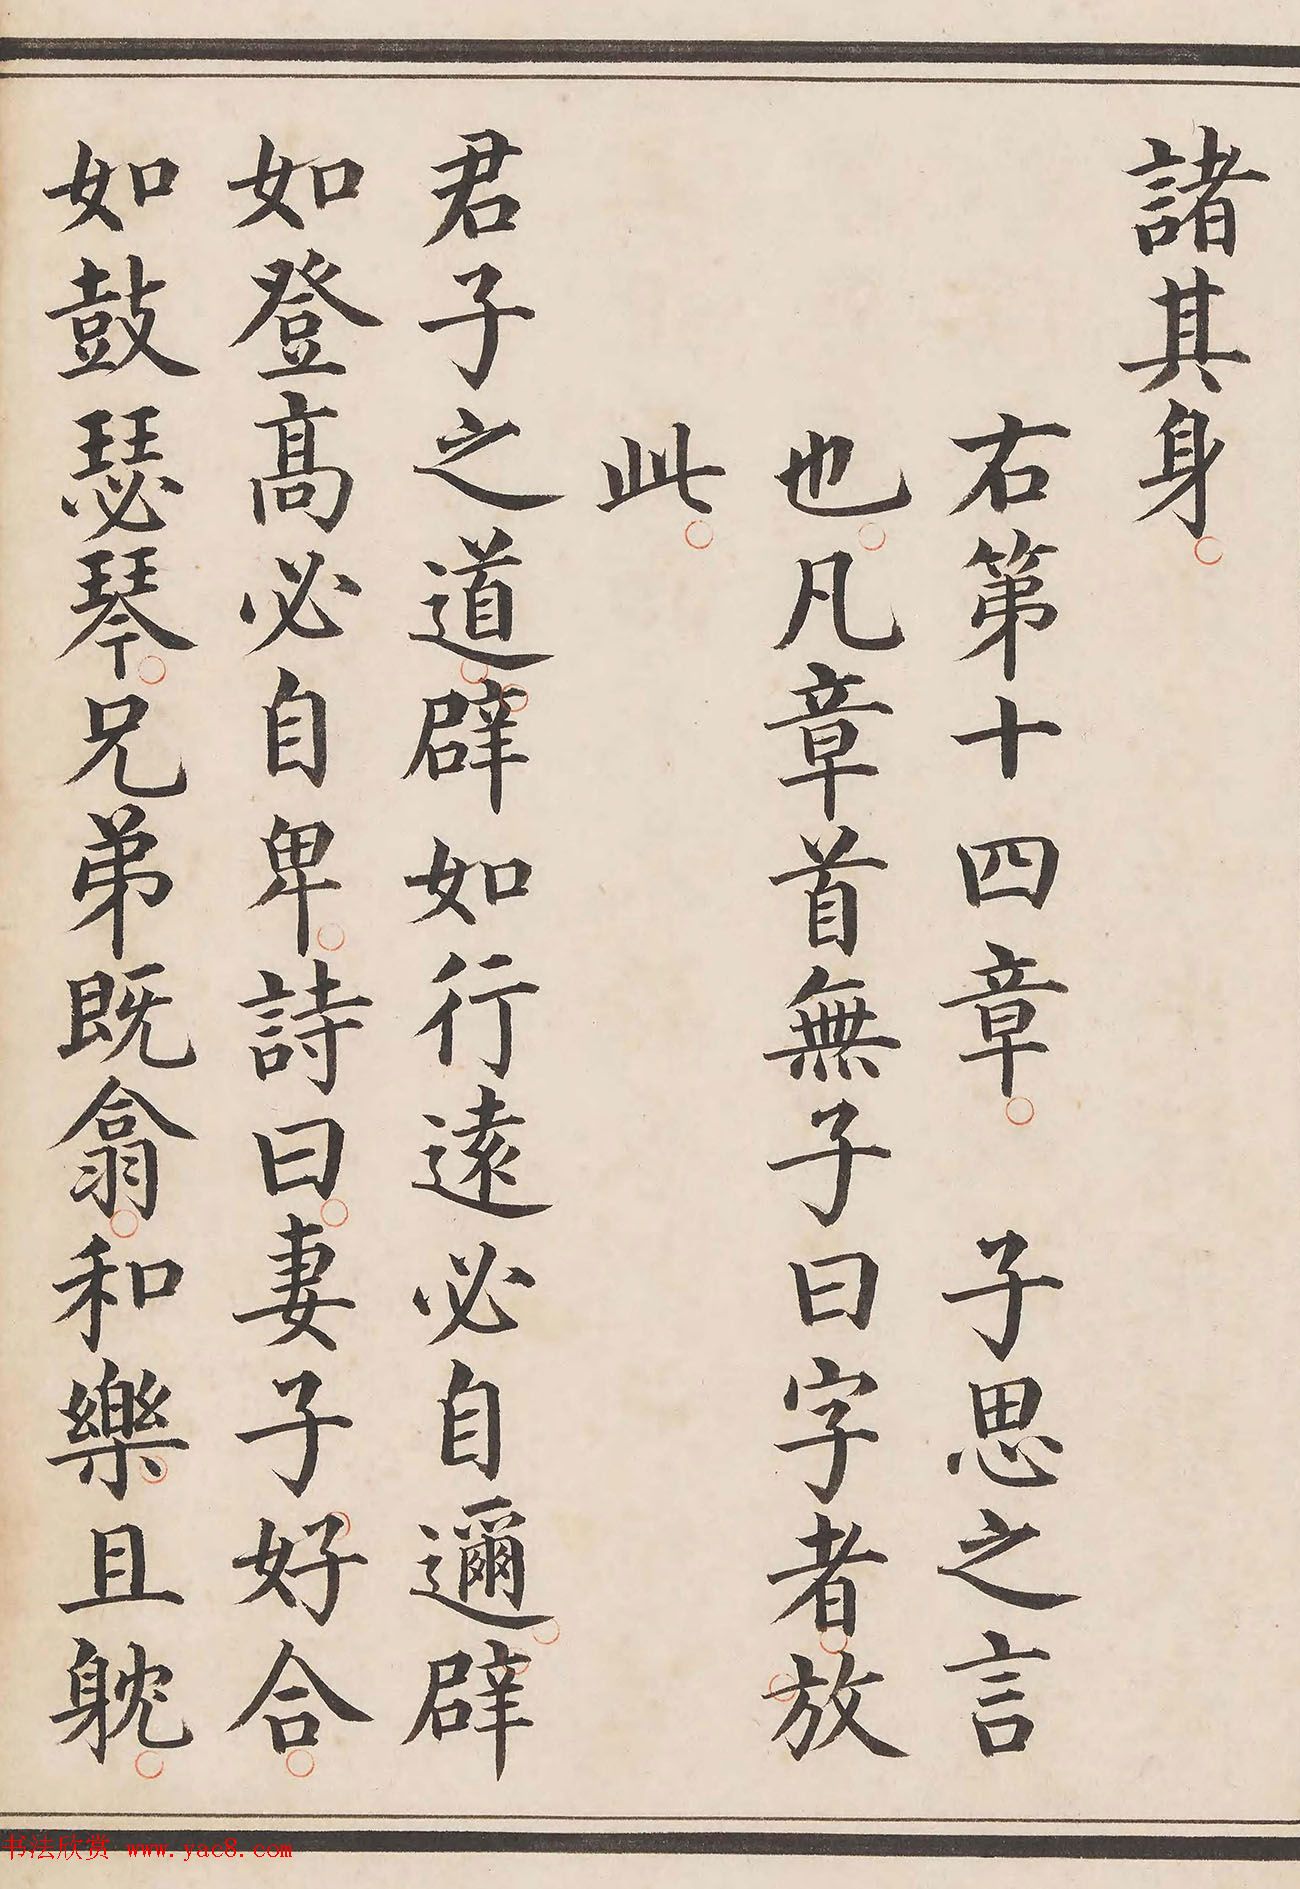 諸其身。
右第十四章。 子思之言
也。凡章首無子曰字者。放
此。
君子之道。辟如行遠必自邇。辟
如登高必自卑。詩曰。妻子好合。
如鼓瑟琴。兄弟既翕。和樂。且躭。
书法欣赏 www.yac8.com